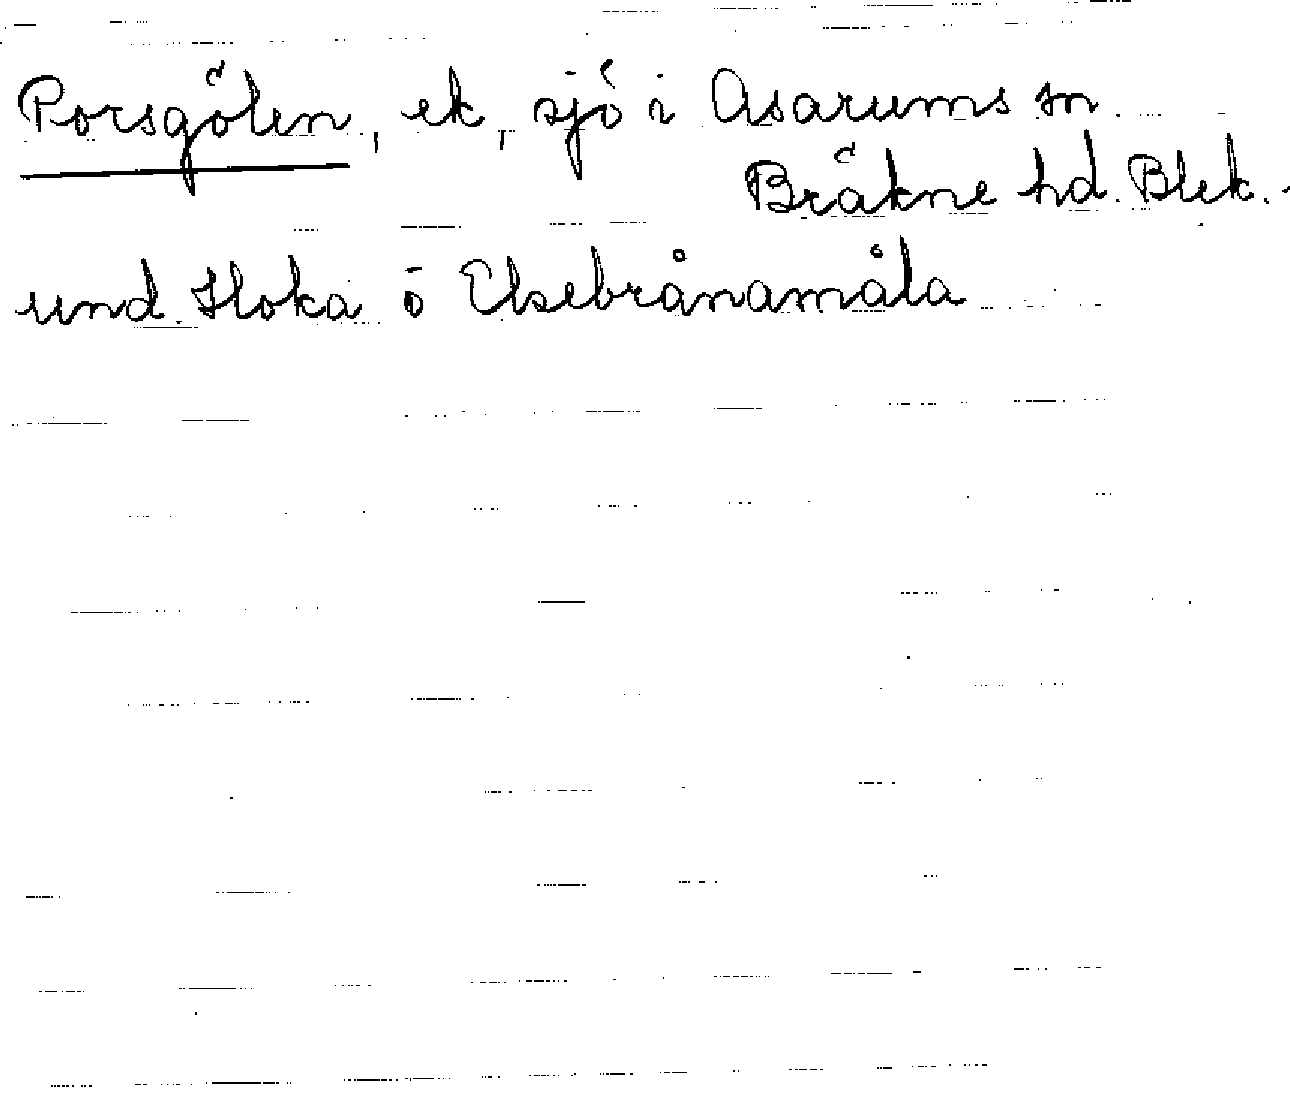 Porsgölen, ek, sjö i Asarums sn
Bräkne hd. Blek.
und. Hoka ö Elsebrånamåla